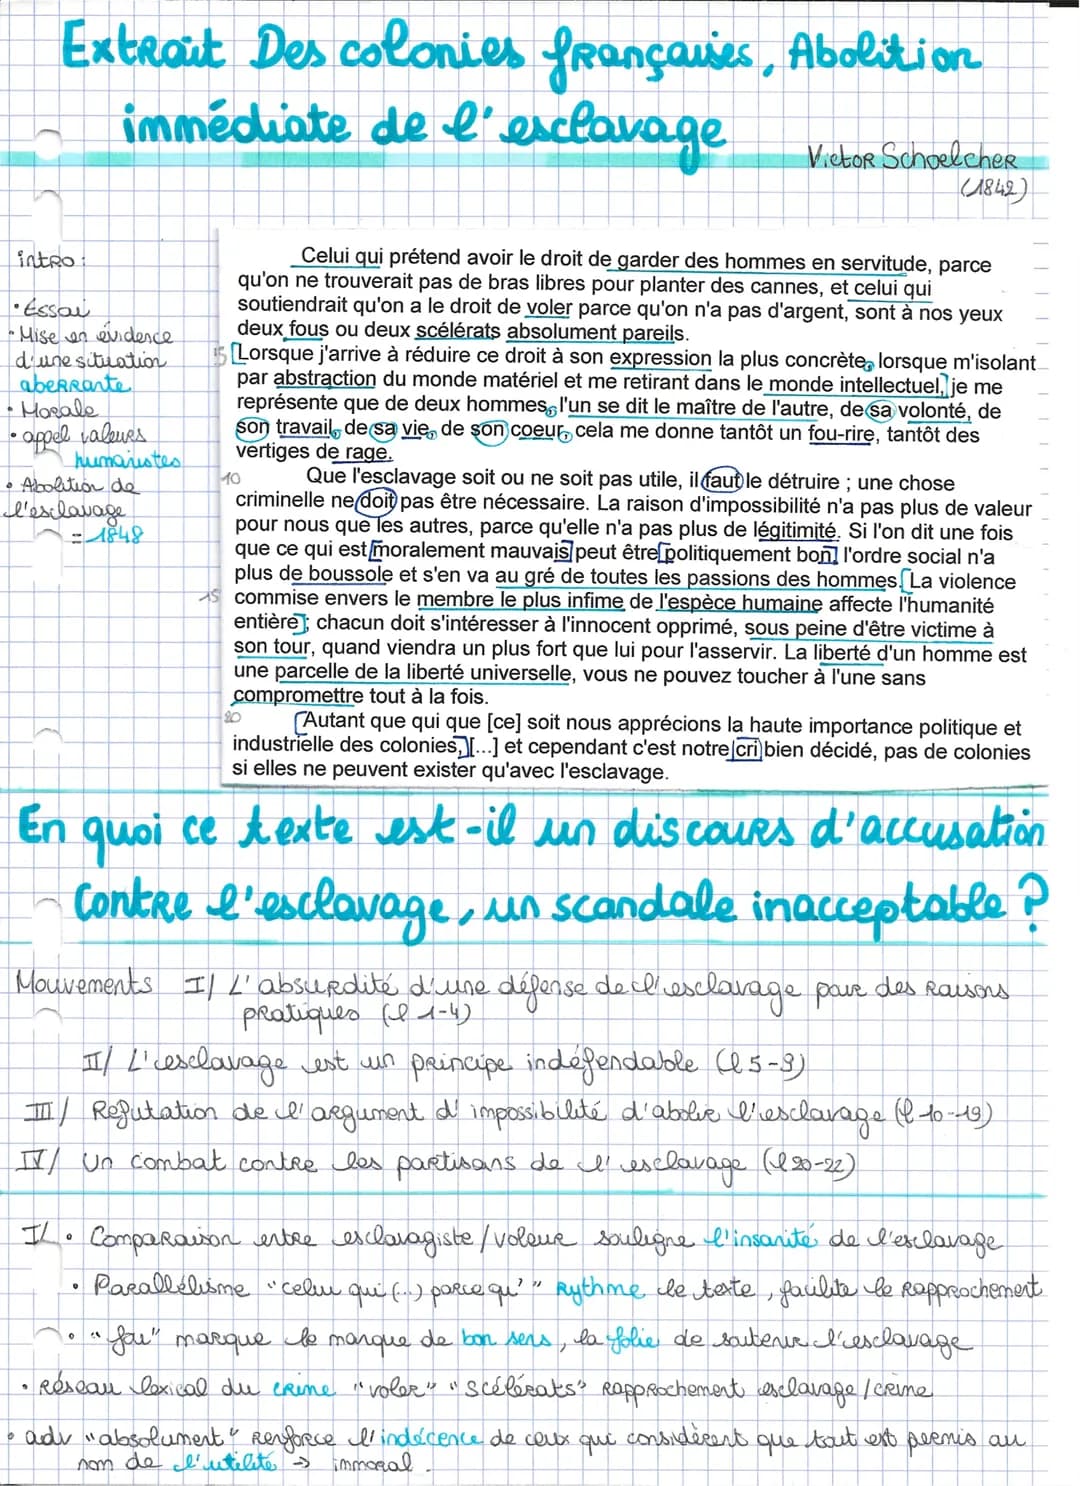 Extrait Des colonies françaises, Abolition
immédiate de l'esclavage
Victor Schoelcher
(1842)
intro :
• Essai
• Mise en évidence
d'une situation
aberrante
• Morale
• appel valeurs
humanistes
• Abolition de
l'esclavage
= 1848
Celui qui prétend avoir le droit de garder des hommes en servitude, parce
qu'on ne trouverait pas de bras libres pour planter des cannes, et celui qui
soutiendrait qu'on a le droit de voler parce qu'on n'a pas d'argent, sont à nos yeux
deux fous ou deux scélérats absolument pareils.
5 [Lorsque j'arrive à réduire ce droit à son expression la plus concrète, lorsque m'isolant
par abstraction du monde matériel et me retirant dans le monde intellectuel,] je me
représente que de deux hommes, l'un se dit le maître de l'autre, de sa volonté, de
son travail, de sa vie, de son coeur, cela me donne tantôt un fou-rire, tantôt des
vertiges de rage.
10 Que l'esclavage soit ou ne soit pas utile, il faut le détruire ; une chose
criminelle ne doit pas être nécessaire. La raison d'impossibilité n'a pas plus de valeur
pour nous que les autres, parce qu'elle n'a pas plus de légitimité. Si l'on dit une fois
que ce qui est [moralement mauvais] peut être [politiquement bon] l'ordre social n'a
plus de boussole et s'en va au gré de toutes les passions des hommes. [La violence
15 commise envers le membre le plus infime de l'espèce humaine affecte l'humanité
entière]; chacun doit s'intéresser à l'innocent opprimé, sous peine d'être victime à
son tour, quand viendra un plus fort que lui pour l'asservir. La liberté d'un homme est
une parcelle de la liberté universelle, vous ne pouvez toucher à l'une sans
compromettre tout à la fois.
20 [Autant que qui que [ce] soit nous apprécions la haute importance politique et
industrielle des colonies,] [...] et cependant c'est notre [cri] bien décidé, pas de colonies
si elles ne peuvent exister qu'avec l'esclavage.
En quoi ce texte est-il un discours d'accusation
contre l'esclavage, un scandale inacceptable ?
Mouvements I/ L'absurdité d'une défense de l'esclavage pour des raisons
pratiques (l 1-4)
II/ L'esclavage est un principe indéfendable (l 5-9)
III/ Réfutation de l'argument d'impossibilité d'abolir l'esclavage (l 10-19)
IV/ Un combat contre les partisans de l'esclavage (l 20-22)
I/ • Comparaison entre esclavagiste/voleur souligne l'insanité de l'esclavage
• Parallélisme "celui qui (...) parce qu'" rythme le texte, facilite le rapprochement
• "fou" marque le manque de bon sens, la folie de soutenir l'esclavage
• Réseau lexical du crime "voler" "scélérats" rapprochement esclavage/crime
• adv "absolument" renforce l'indécence de ceux qui considèrent que tout est permis au
nom de l'utilité → immoral.